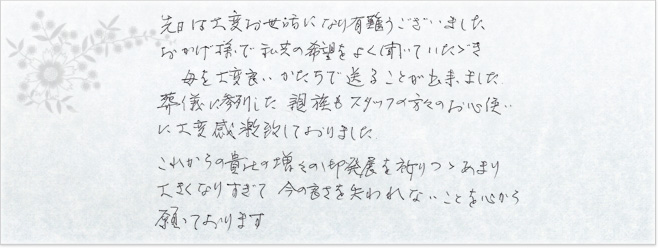 先日は大変お世話になり有難うございました
おかげ様で私共の希望をよく聞いていただき
母を大変良いかたちで送ることが出来ました.
葬儀に参列した親族もスタッフの方々のお心使い
に大変感激致しておりました.
これからの貴社の増々の御発展を祈りつつあまり
大きくなりすぎて今の良さを失われないことを心から
願っております